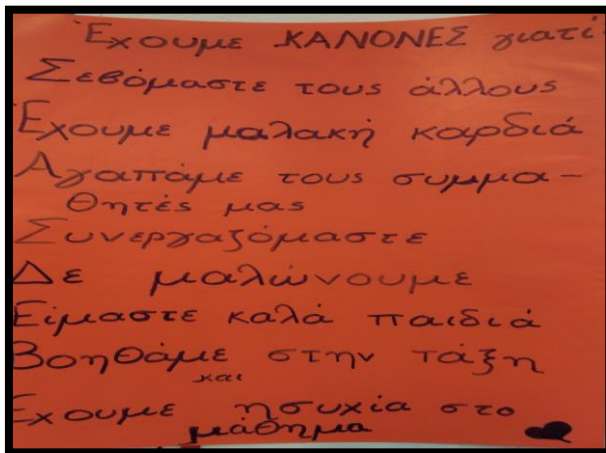 Έχουμε ΚΑΝΟΝΕΣ γιατί
Σεβόμαστε τους άλλους
Έχουμε μαλακή καρδιά
Αγαπάμε τους συμμα-
θητές μας
Συνεργαζόμαστε
Δε μαλώνουμε
Είμαστε καλά παιδιά
Βοηθάμε στην τάξη
και
Έχουμε ησυχία στο
μάθημα